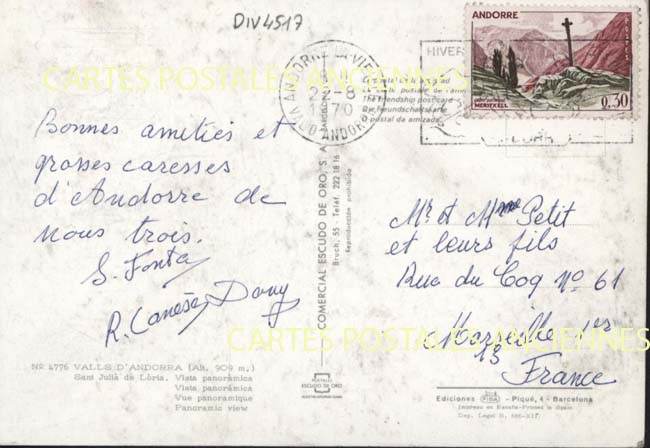 DIV4517
ANDORRE
POSTES
MERITXELL
0.30
ANDORRE LA VIEILLE
VAL D'ANDORRE
1970
HIVER
CARTES POSTALES ANCIENNES
The friendship postcard
Die Freundschaftskarte
O postal da amizade
Bonnes amitiés et
grosses caresses
d'Andorre de
nous trois.
S. Fonta
R. Canese Dany
COMERCIAL ESCUDO DE ORO, S. A.
Bruch, 55 - Teléf. 222 18 16
Reproducción prohibida
Mr et Mme Petit
et leurs fils
Rue du Coq Nº 61
Marseille 1er
13
France
CARTES POSTALES ANCIENNES
Nº 4776 VALLS D'ANDORRA (Alt. 909 m.)
Sant Julià de Lòria. Vista panoràmica
Vista panorámica
Vue panoramique
Panoramic view
POSTALES
ESCUDO DE ORO
Ediciones FISA - Piqué, 4 - Barcelona
Impreso en España-Printed in Spain
Dep. Legal B. 586-XII.